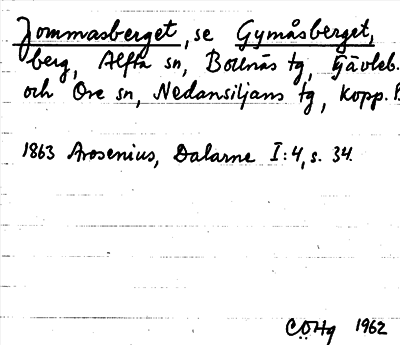 Jommasberget, se Gymåsberget,
berg, Alfta sn, Bollnäs tg, Gävleb.
och Ore sn, Nedansiljans tg, Kopp.
1863 Arosenius, Dalarne I:4, s. 34.
CÖHg 1962